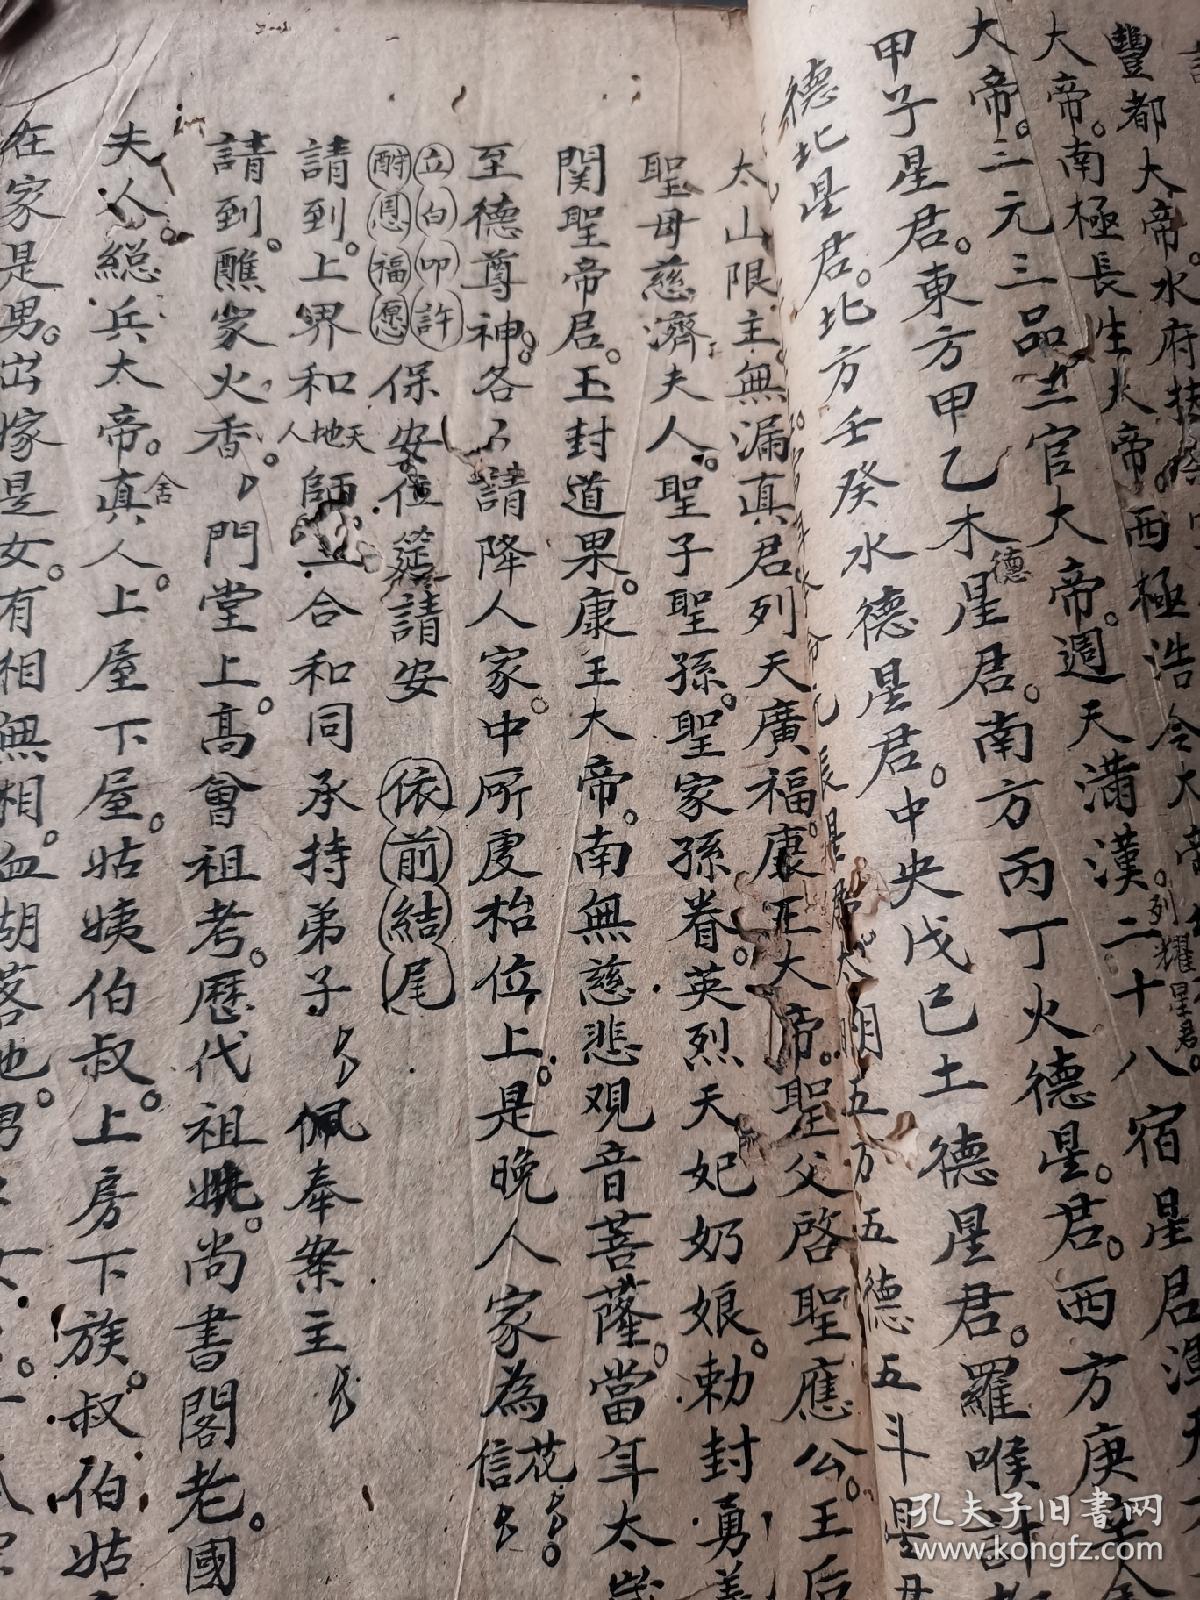 豐都大帝。水府扶
大帝。南極長生大帝。西極浩
列耀星君。
大帝。三元三品三官大帝。週天滿漢二十八宿星君
甲子星君。東方甲乙木德星君。南方丙丁火德星君。西方庚辛金
德星君。北方壬癸水德星君。中央戊己土德星君。羅喉計
五方五德五斗星君
太山限主。無漏真君列天廣福。康王大帝。聖父啓聖應公。王后
聖母慈濟夫人。聖子聖孫。聖家孫眷。英烈天妃奶娘。勅封勇
関聖帝君。玉封道果。康王大帝。南無慈悲观音菩薩。當年太
至德尊神。各々請降人家。中所虔枱位上。是晚人家為花信
立白叩許
酧恩福愿
保安位筵請安 依前結尾
請到。上界和天地人師一合和同承持弟子 佩奉案主
請到。醮家火香。門堂上。高曾祖考。歷代祖妣。尚書閣老。國
夫人総兵太帝。真人。上屋下屋。姑姨伯叔。上房下族。叔伯姑
舍
在家是男。出嫁是女。有相無相。血湖落地。男
孔夫子旧书网
www.kongfz.com